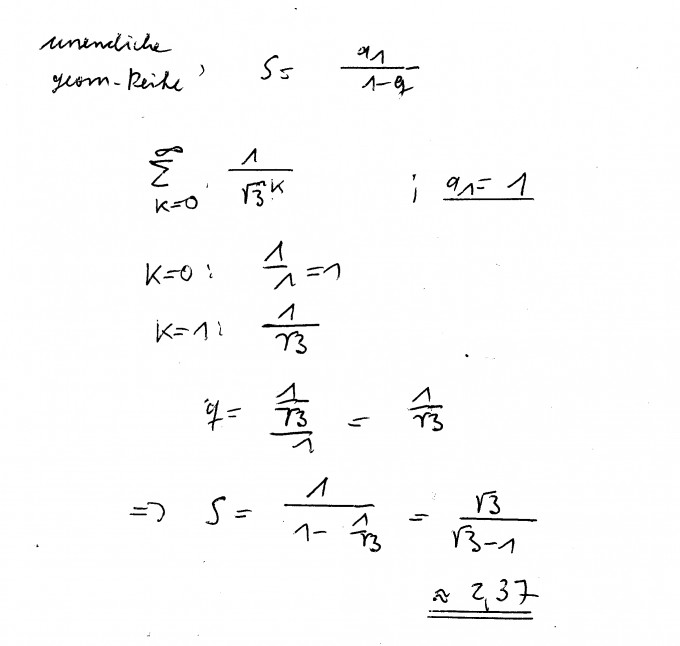 unendliche
geom. Reihe, S = a₁/(1-q)
∑_{k=0}^{∞} 1/√3^k ; a₁ = 1
K=0: 1/1 = 1
K=1: 1/√3
q = (1/√3)/1 = 1/√3
=> S = 1/(1 - 1/√3) = √3/(√3-1)
≈ 2,37